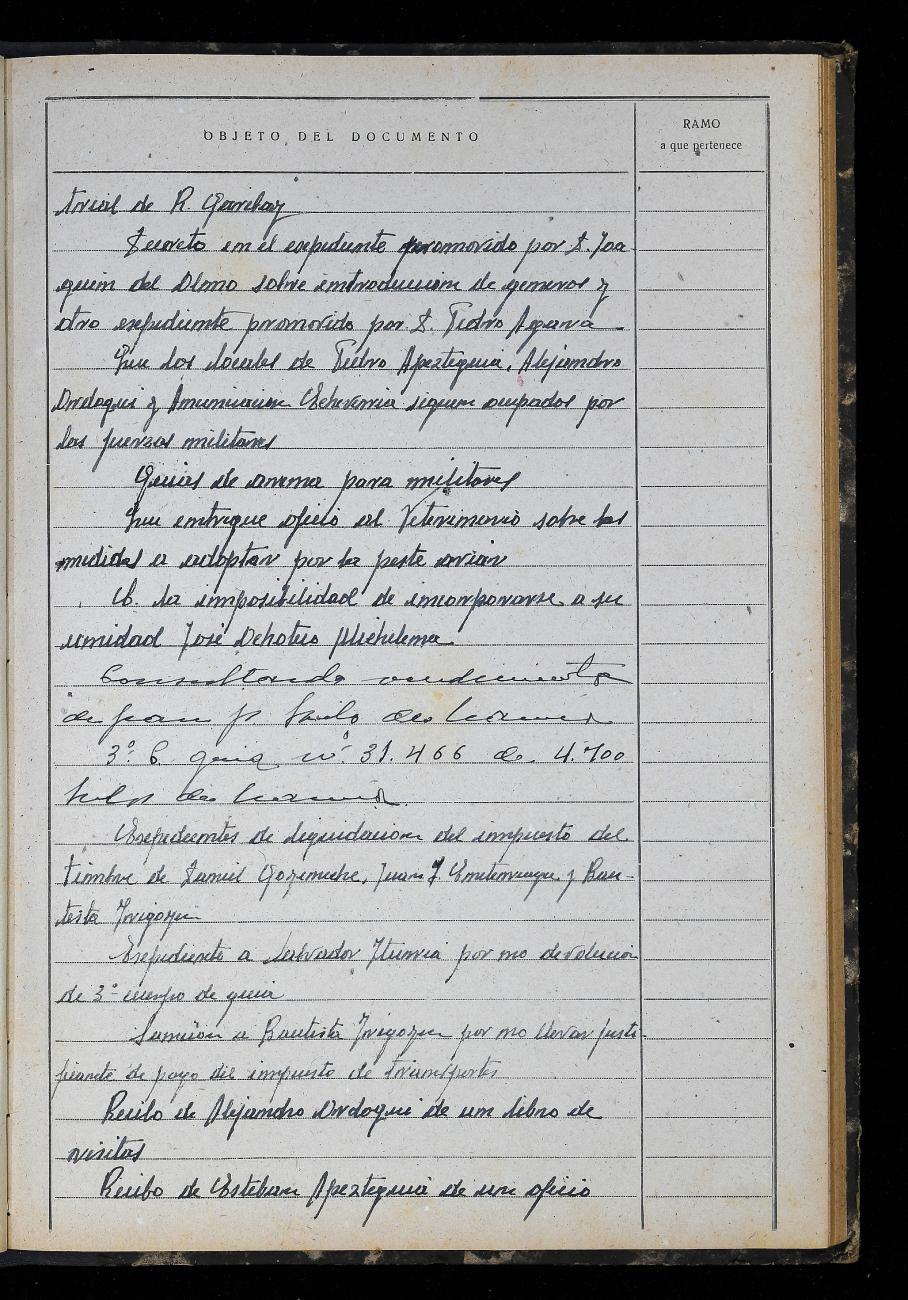 OBJETO DEL DOCUMENTO
RAMO
a que pertenece
trial de R. Garibay
Decreto en el expediente promovido por D. Joa
quin del Olmo sobre introduccion de generos y
otro expediente promovido por D. Pedro Agara
Que los locales de Pedro Apezteguia, Alejandro
Ordoqui y Anunciacion Echeverria siguen ocupados por
las fuerzas militares
Guias de arma para militares
Que entregue oficio al Veterinario sobre las
medidas a adoptar por la peste aviar
C. la imposibilidad de incorporarse a su
unidad José Michelena
Consultando
de
3º C. guia nº 31.466 de 4.700
de
Expedientes de liquidacion del impuesto del
timbre de Daniel Gozemeche, Juan J. y Bau-
tista Irigoyen
Expediente a Salvador Iturria por no devolucion
de 3º cuerpo de guia
Sancion a Bautista Irigoyen por no llevar justi-
ficante de pago del impuesto de transportes
Recibo de Alejandro Ordoqui de un libro de
visitas
Recibo de Esteban Apezteguia de un oficio